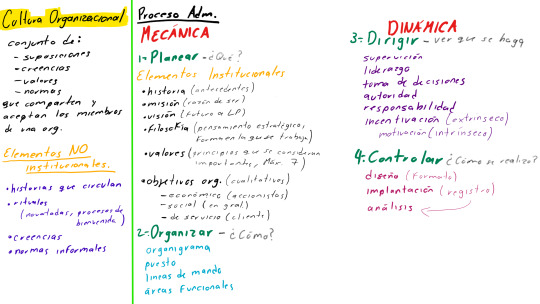 Cultura Organizacional
conjunto de:
- suposiciones
- creencias
- valores
- normas
que comparten y
aceptan los miembros
de una org.
Elementos NO
institucionales.
• historias que circulan
• rituales
(novatadas, procesos de
bienvenida)
• creencias
• normas informales
Proceso Adm.
MECÁNICA
1.- Planear - ¿Qué?
Elementos Institucionales
• historia (antecedentes)
• misión (razón de ser)
• visión (futuro a LP)
• filosofía (pensamiento estratégico,
forma en la que de trabaja)
• valores (principios que se consideran
importantes, Máx. 7)
• objetivos org. (cualitativos)
- económico (accionistas)
- social (en gral.)
- de servicio (cliente)
2.- Organizar - ¿Cómo?
organigrama
puesto
lineas de mando
áreas funcionales
DINÁMICA
3.- Dirigir - ver que se haga
supervición
liderazgo
toma de decisiones
autoridad
responsabilidad
incentivación (extrínseco)
motivación (intrínseco)
4.- Controlar ¿Cómo se realizo?
diseño (formato)
implantación (registro)
análisis